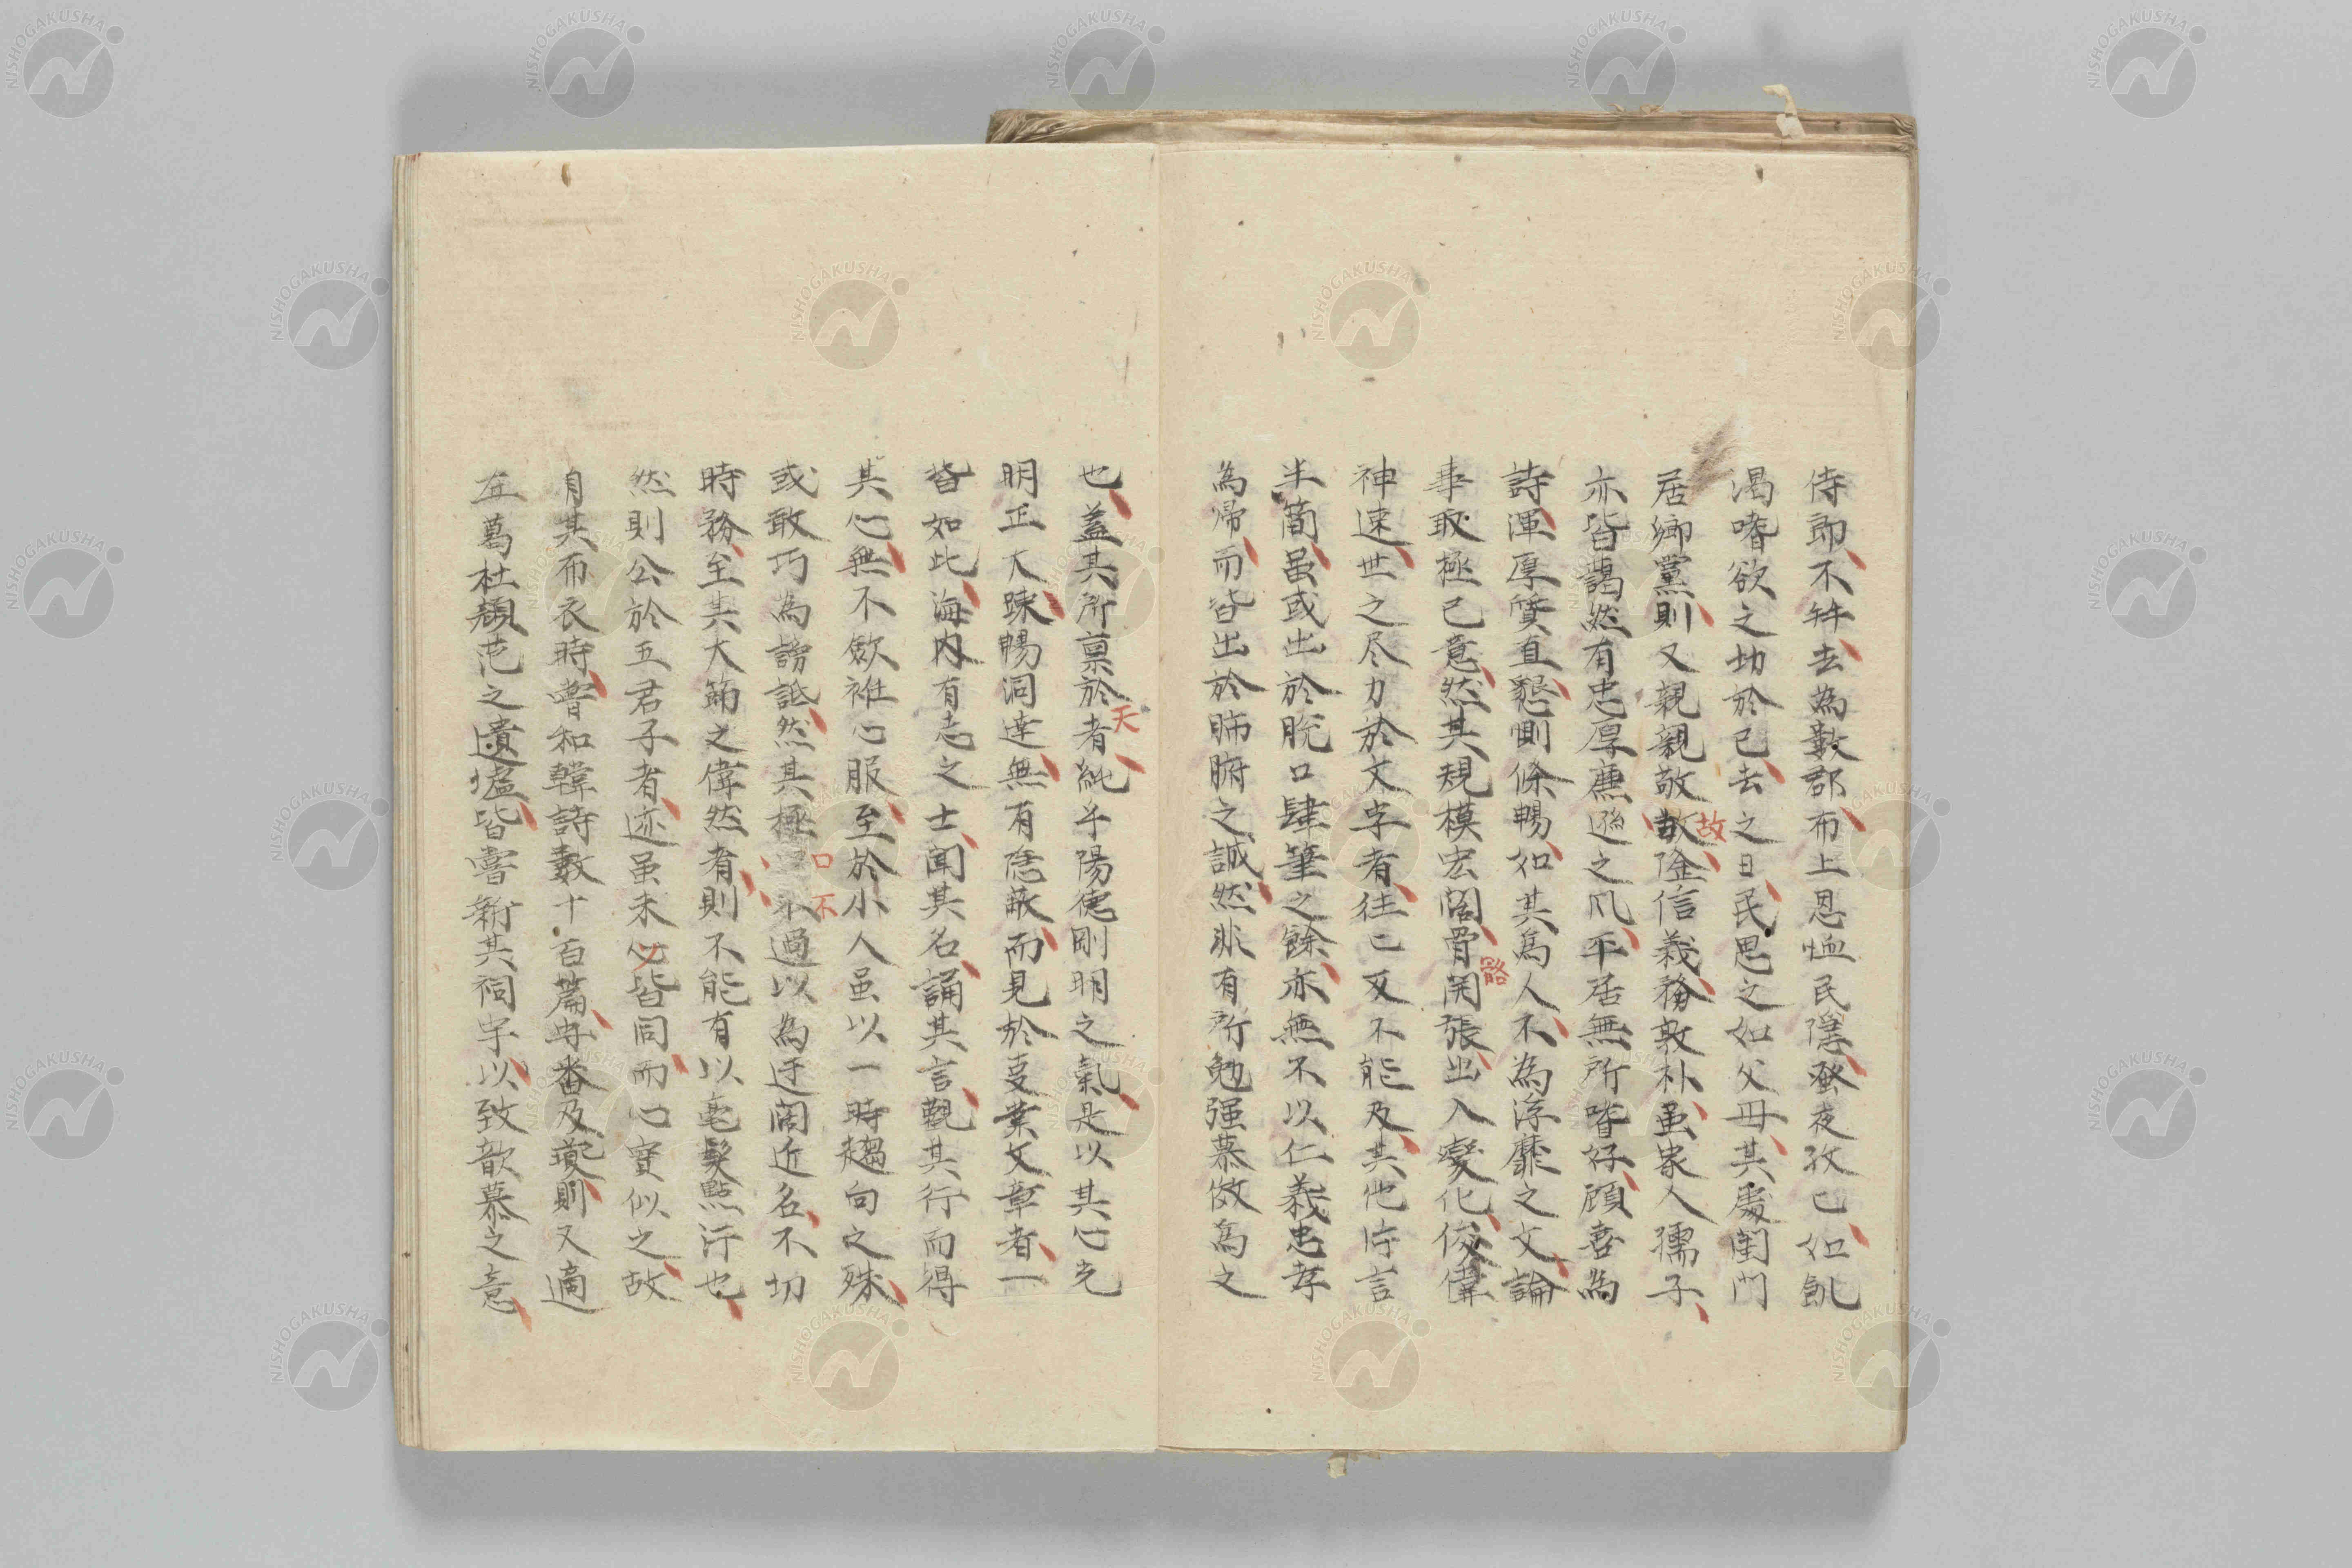 侍郎不幹去為數郡布上恩恤民隱蚤夜孜已如飢
渴嗜欲之切於己去之日民思之如父母其處閨門
居鄉黨則又親親敬故隆信義務敦朴虽家人孺子
故
亦皆藹然有忠厚廉遜之風平居無所嗜好顧喜為
詩渾厚質直懇惻條暢如其為人不為浮靡之文論
事取極己意然其規模宏闊骨開張出入變化俊偉
骼
神速世之尽力於文字者往已反不能及其他片言
半簡虽或出於脫口肆筆之餘亦無不以仁義忠孝
為帰而皆出於肺腑之誠然非有所勉强慕傚為之
也蓋其所禀於者純乎陽德剛明之氣是以其心光
天
明正大踈暢洞達無有隱蔽而見於㕝業文章者一
皆如此海内有志之士聞其名誦其言觀其行而得
其心無不歛衽心服至於小人虽以一時趨向之殊
或敢巧為謗詆然其極口不過以為迂闊近名不切
口不
時務至其大節之偉然者則不能有以毫髮點汙也
然則公於五君子者迹虽未必皆同而心實似之故
自其布衣時嘗和韓詩數十百篇守番及夔則又適
在葛杜顏范之遺墟皆嘗新其祠宇以致歆慕之意